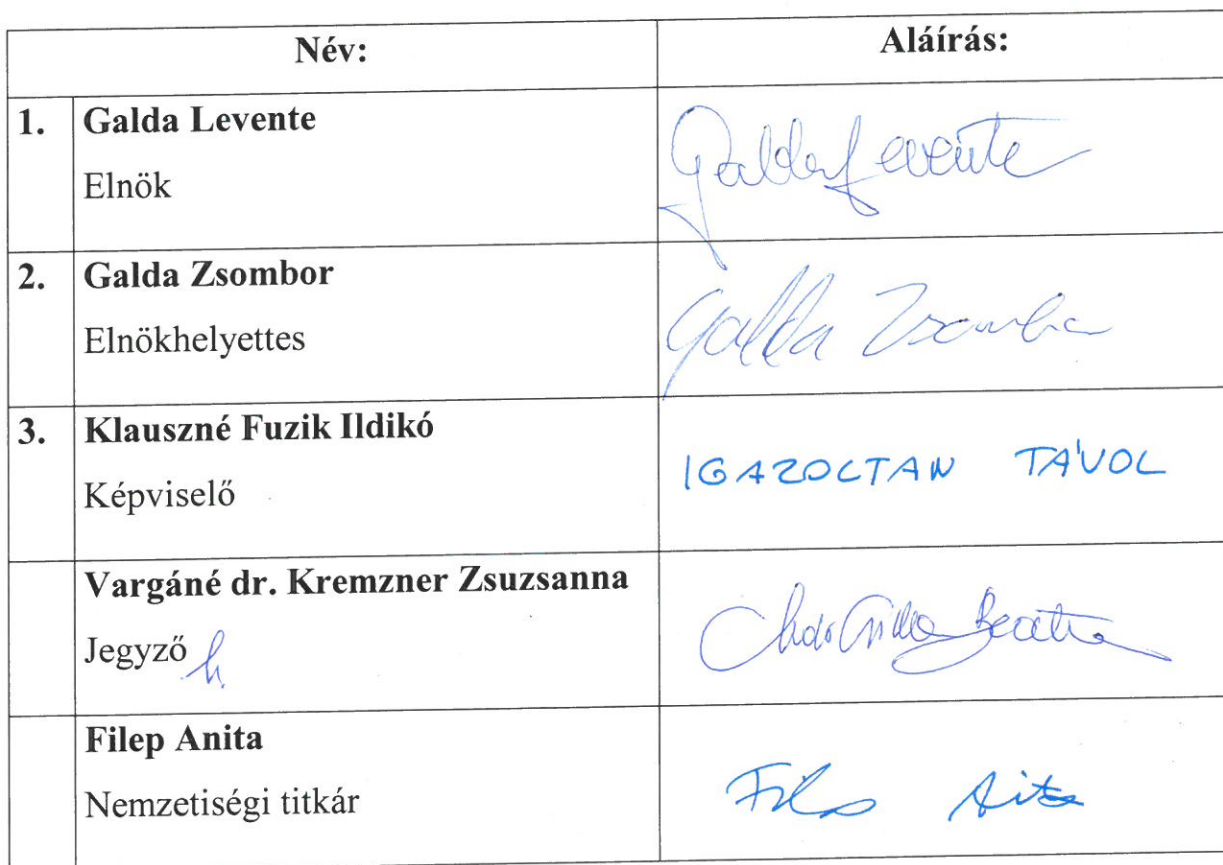 Név: Aláírás:
1. Galda Levente
Elnök
Galda Levente
2. Galda Zsombor
Elnökhelyettes
Galda Zsombor
3. Klauszné Fuzik Ildikó
Képviselő
IGAZOLTAN TÁVOL
Vargáné dr. Kremzner Zsuzsanna
Jegyző h.
Filep Anita
Nemzetiségi titkár